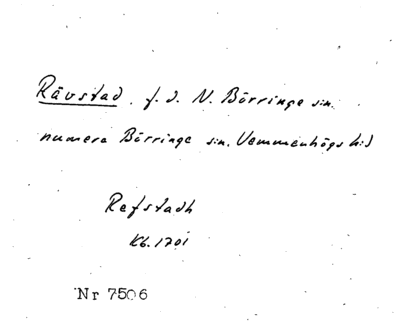 Rävstad f. d. N. Börringe sn.
numera Börringe sn. Vemmenhögs hd
Refstadh
Kb. 1701
Nr 7506